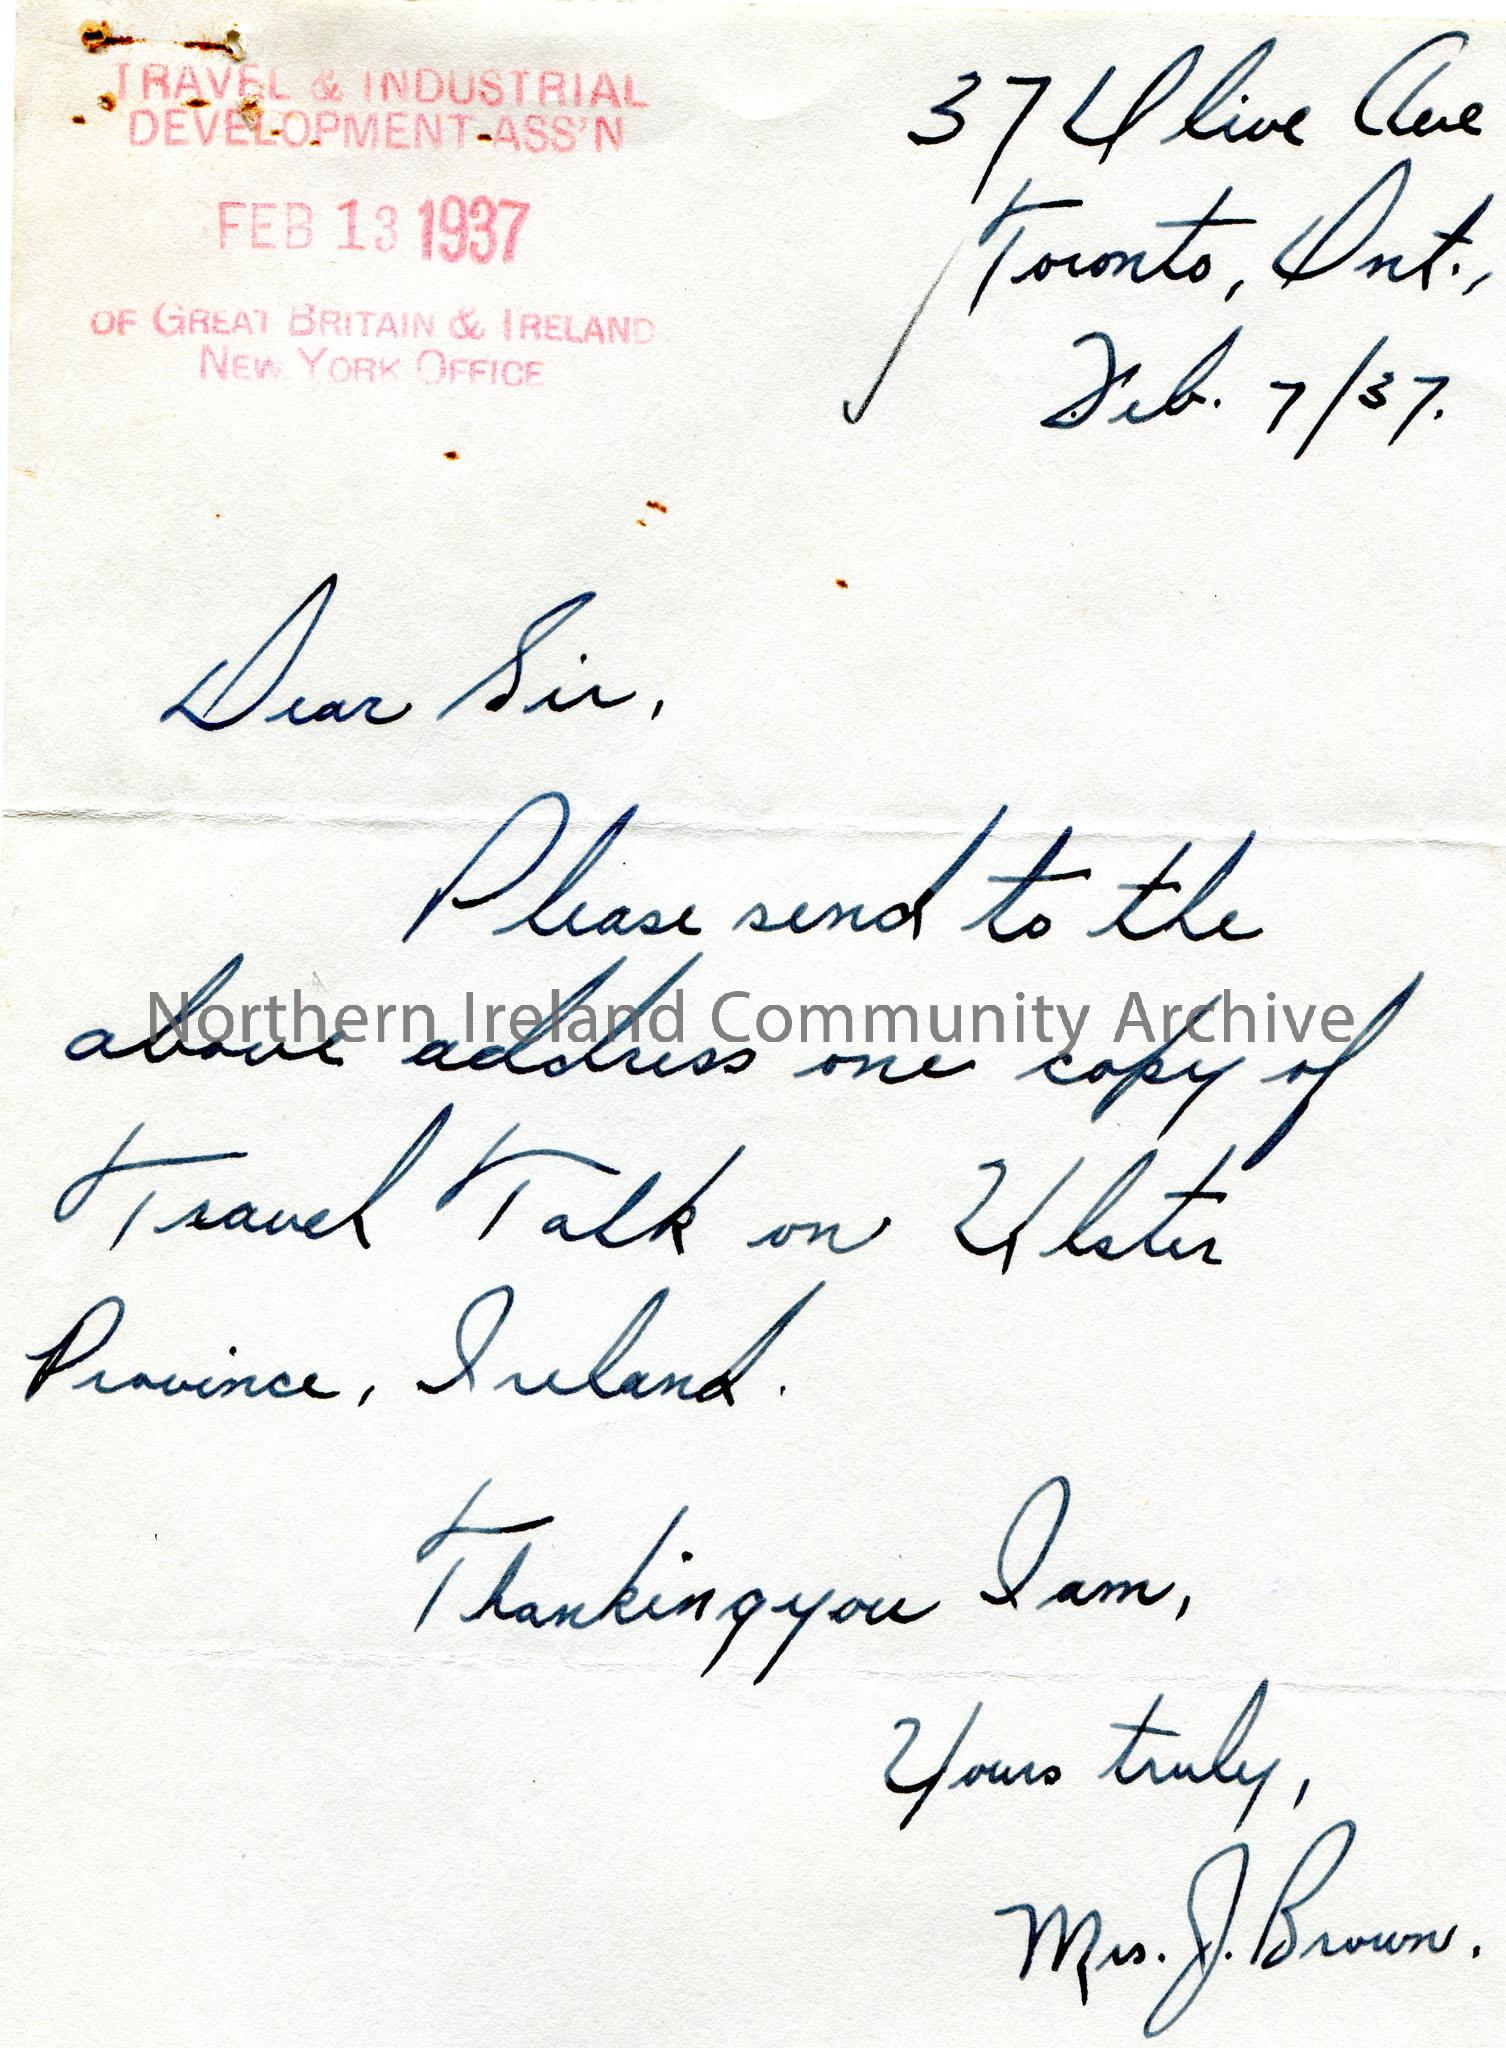 TRAVEL & INDUSTRIAL
DEVELOPMENT ASS'N
FEB 13 1937
OF GREAT BRITAIN & IRELAND
NEW YORK OFFICE
37 Olive Ave
Toronto, Ont.,
Feb. 7/37.
Dear Sir,
Please send to the
above address one copy of
Travel Talk on Ulster
Province, Ireland.
Thanking you I am,
Yours truly,
Mrs. J. Brown.
Northern Ireland Community Archive